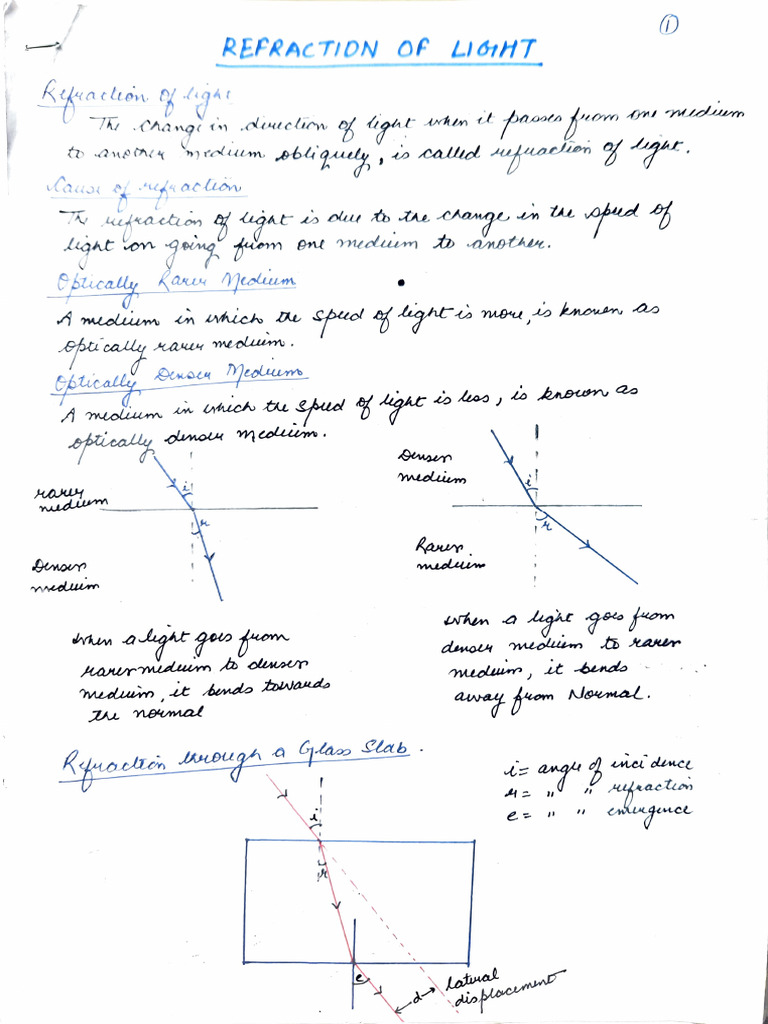 1
REFRACTION OF LIGHT
Refraction of light
The change in direction of light when it passes from one medium
to another medium obliquely, is called refraction of light.
Cause of refraction
The refraction of light is due to the change in the speed of
light on going from one medium to another.
Optically Rarer Medium
A medium in which the speed of light is more, is known as
optically rarer medium.
Optically Denser Medium
A medium in which the speed of light is less, is known as
optically denser medium.
rarer
medium
i
r
Denser
medium
Denser
medium
i
r
Rarer
medium
when a light goes from
rarer medium to denser
medium, it bends towards
the normal
when a light goes from
denser medium to rarer
medium, it bends
away from Normal.
Refraction through a Glass Slab.
i = angle of incidence
r = " " refraction
e = " " emergence
i
r
e
d
latural
displacement